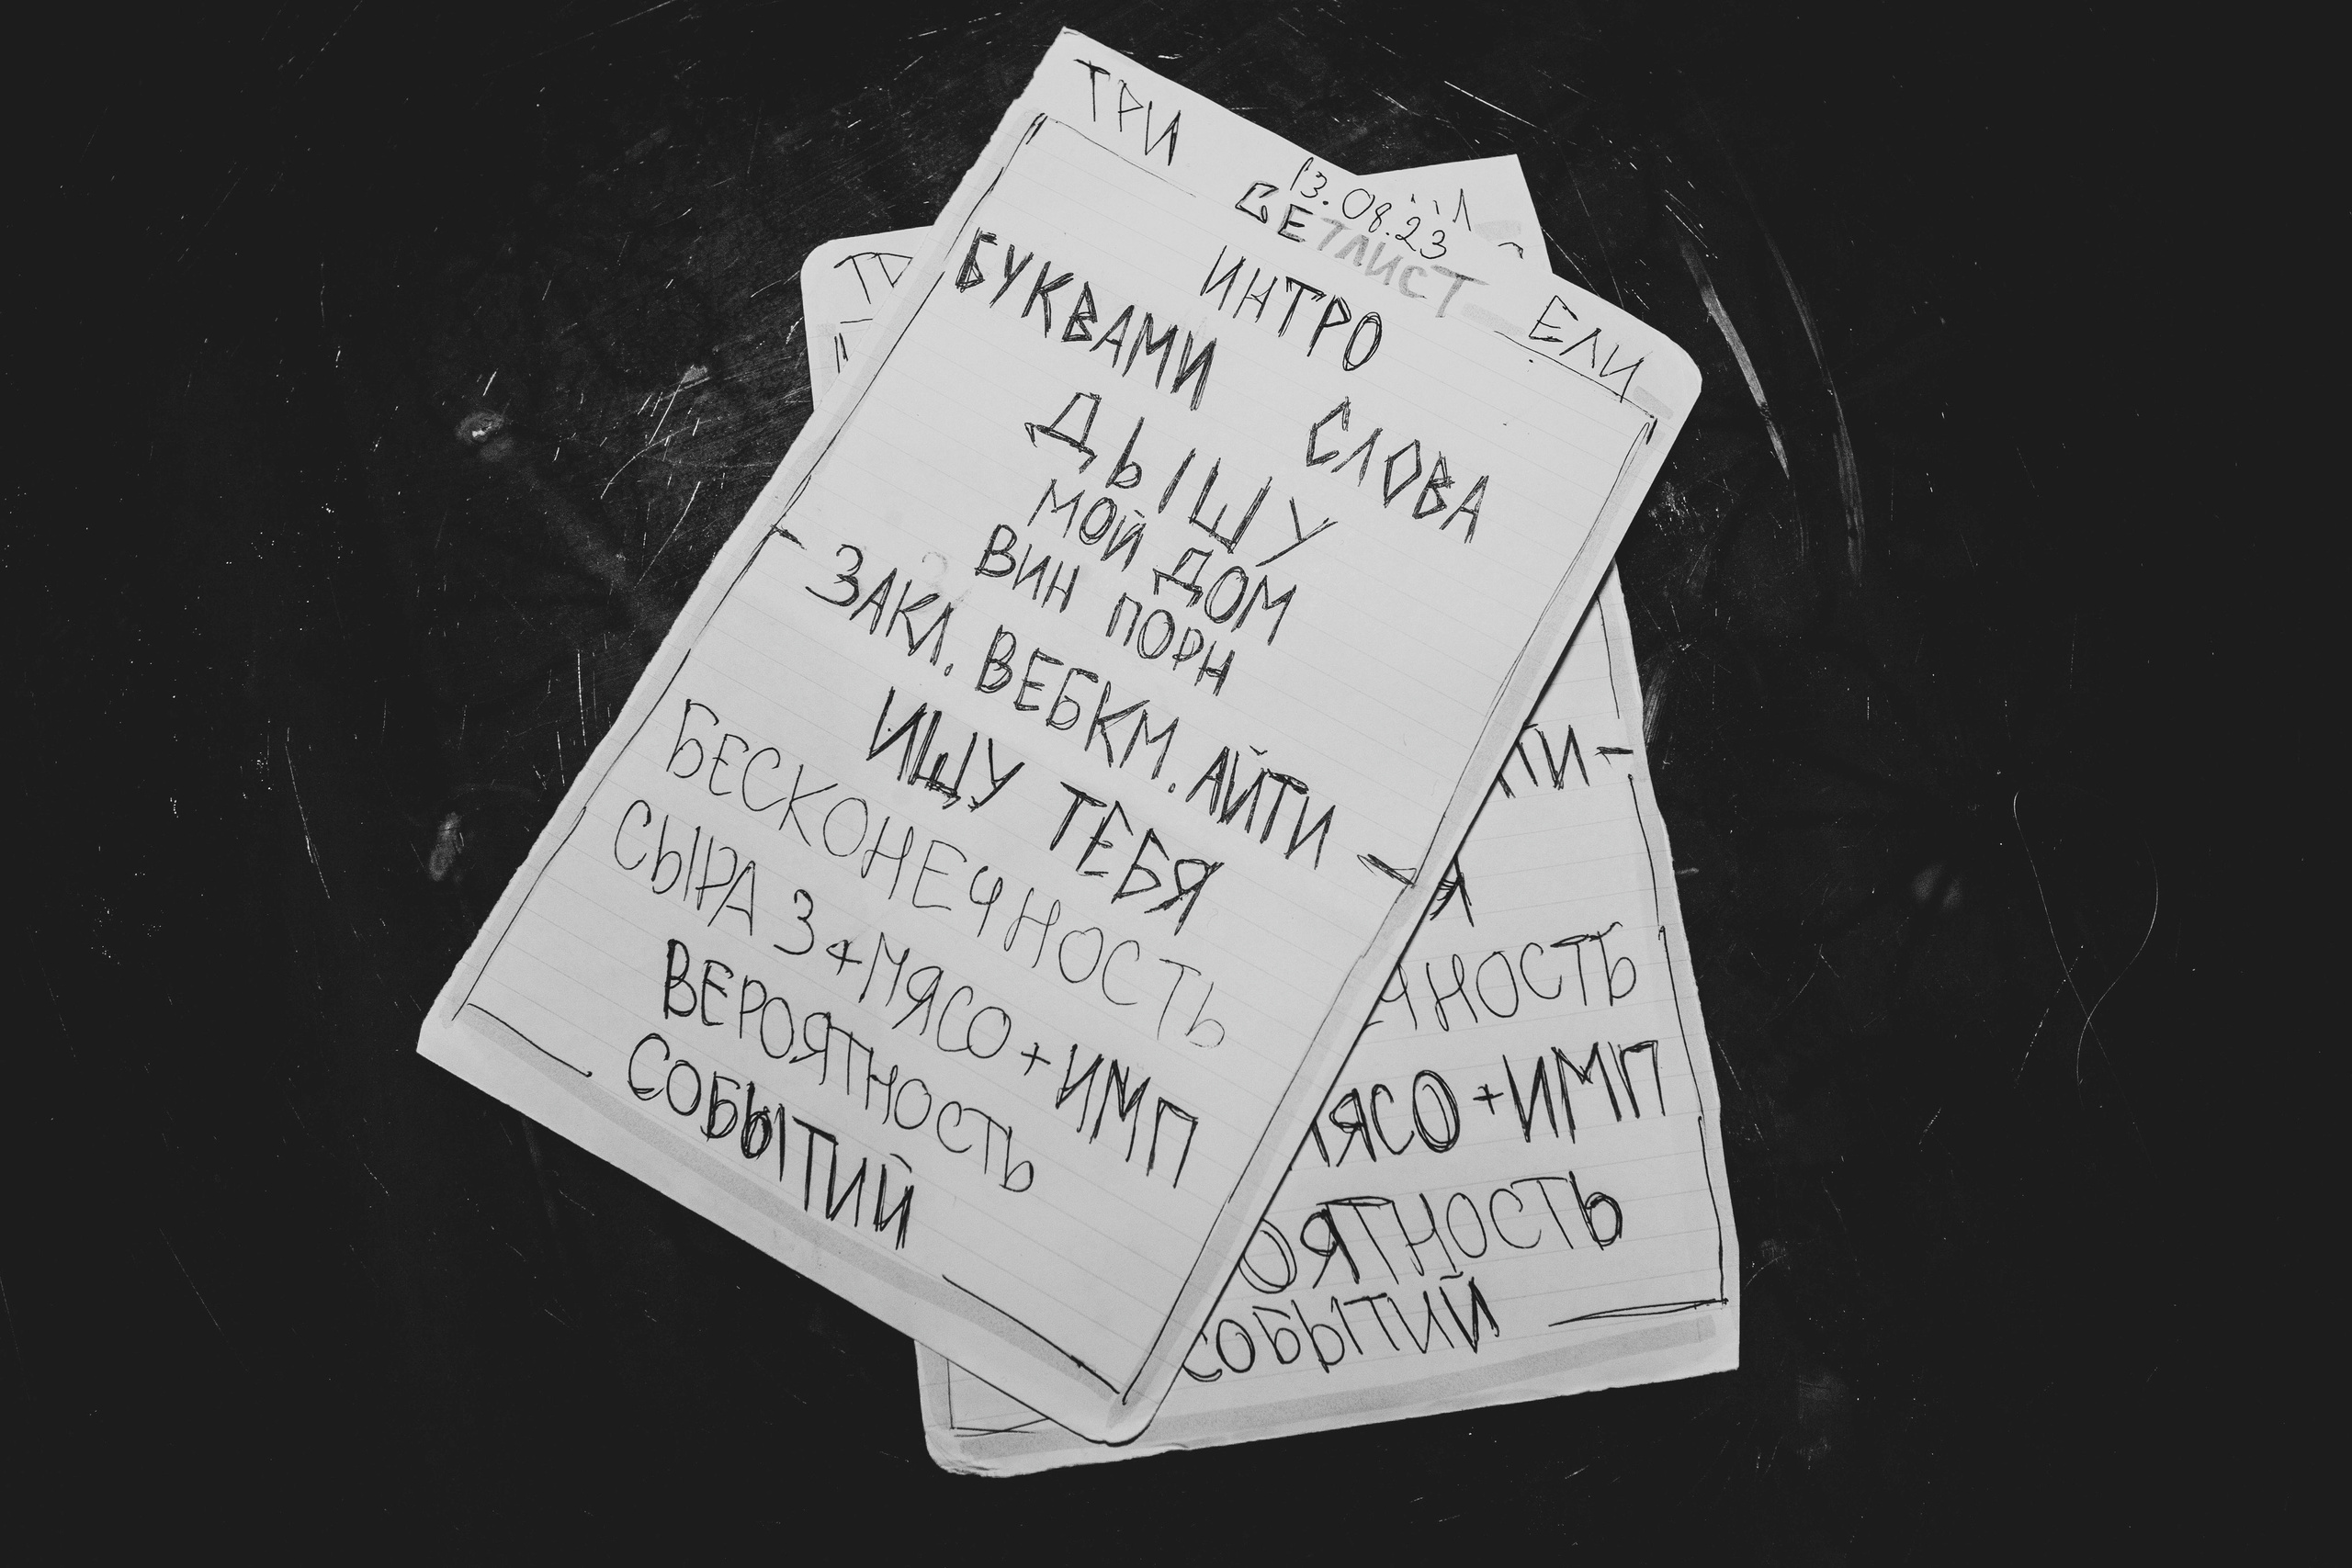 ТРИ 13.08.23 ЕЛИ
СЕТЛИСТ
ИНТРО
БУКВАМИ СЛОВА
ДЫШУ
МОЙ ДОМ
ВИН ПОРН
ЗАКЛ. ВЕБКМ. АЙТИ -
ИЩУ ТЕБЯ
БЕСКОНЕЧНОСТЬ
СЫРА 3+МЯСО+ИМП
ВЕРОЯТНОСТЬ
СОБЫТИЙ
ТИ-
Я
ЧНОСТЬ
ЯСО+ИМП
ОЯТНОСТЬ
СОБЫТИЙ